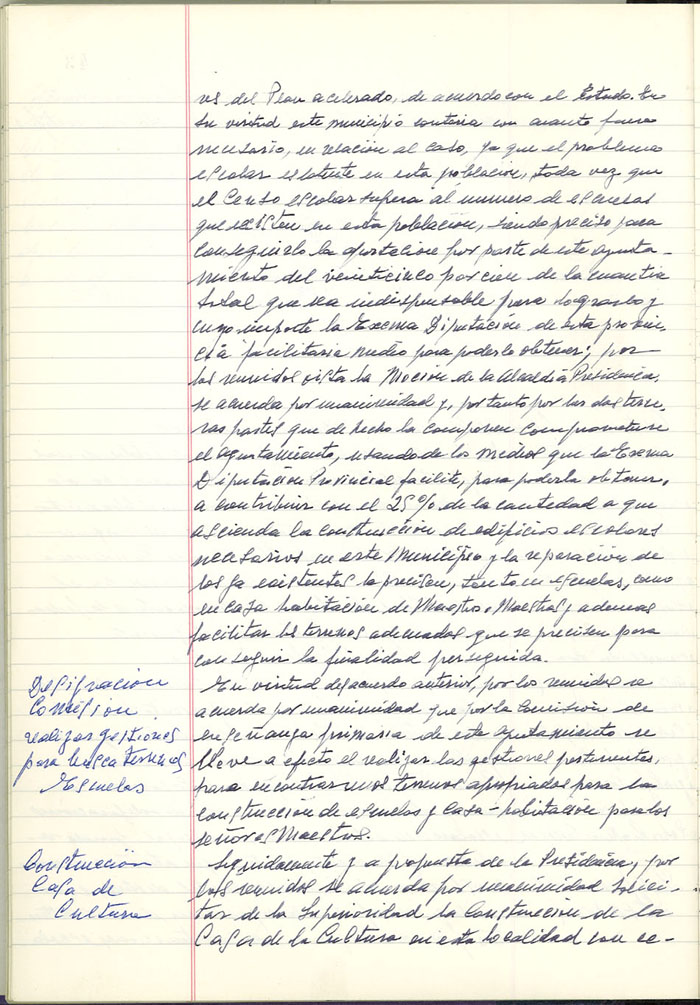 res del Plan acelerado, de acuerdo con el Estado. En
su virtud este municipio contaria con cuanto fuera
necesario, en relación al caso, ya que el problema
escolar es latente en esta población, toda vez que
el Censo escolar supera al numero de escuelas
que existen en esta población, siendo preciso para
conseguirlo la aportación por parte de este ayunta-
miento del veinticinco por cien de la cuantia
total que sea indispensable para lograrlo y
cuyo importe la Excma Diputación de esta provin-
cia facilitaria medio para poderlo obtener; por
los reunidos vista la Moción de la Alcaldia Presidencia,
se acuerda por unanimidad y, por tanto por las dos terce-
ras partes que de hecho la componen comprometerse
el ayuntamiento, usando de los medios que la Excma
Diputación Provincial facilite, para poderla obtener,
a contribuir con el 25% de la cantidad a que
ascienda la construcción de edificios escolares
necesarios en este Municipio y la reparación de
los ya existentes lo precisen, tanto en escuelas, como
en casa habitación de Maestro o Maestras y ademas
facilitar los terrenos adecuados que se precisen para
conseguir la finalidad perseguida.
Designación
Comision
realizar gestiones
para busca terrenos
Escuelas
En virtud del acuerdo anterior, por los reunidos se
acuerda por unanimidad que por la Comisión de
enseñanza primaria de este ayuntamiento se
lleve a efecto el realizar las gestiones pertinentes,
para encontrar unos terrenos apropiados para la
construcción de escuelas y casa-habitación para los
señores Maestros.
Construcción
Casa de
Cultura
Seguidamente y a propuesta de la Presidencia, por
los reunidos se acuerda por unanimidad solici-
tar de la Superioridad la Construcción de la
Casa de la Cultura en esta localidad con ce-